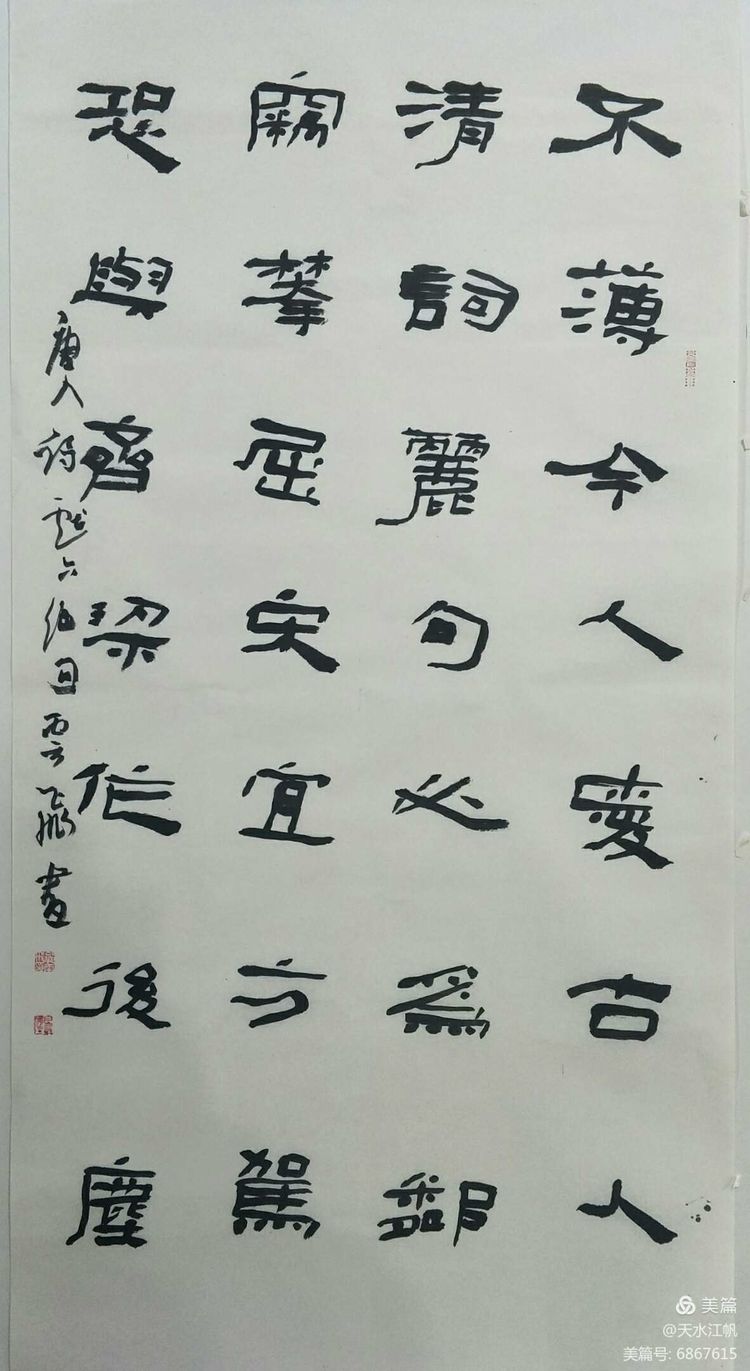 不薄今人愛古人
清詞麗句必爲鄰
竊攀屈宋宜方駕
恐與齊梁作後塵
唐人詩戲六絕句 書
美篇
@天水江帆
美篇号: 6867615